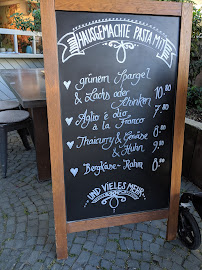 HAUSGEMACHTE PASTA MIT
♥ grünem Spargel
& Lachs oder
Schinken 10.80
♥ Aglio e olio
à la Franco 7.80
♥ Thaicurry & Gemüse
& Huhn 9.80
♥ Bergkäse-Rahm 8.80
UND VIELES MEHR